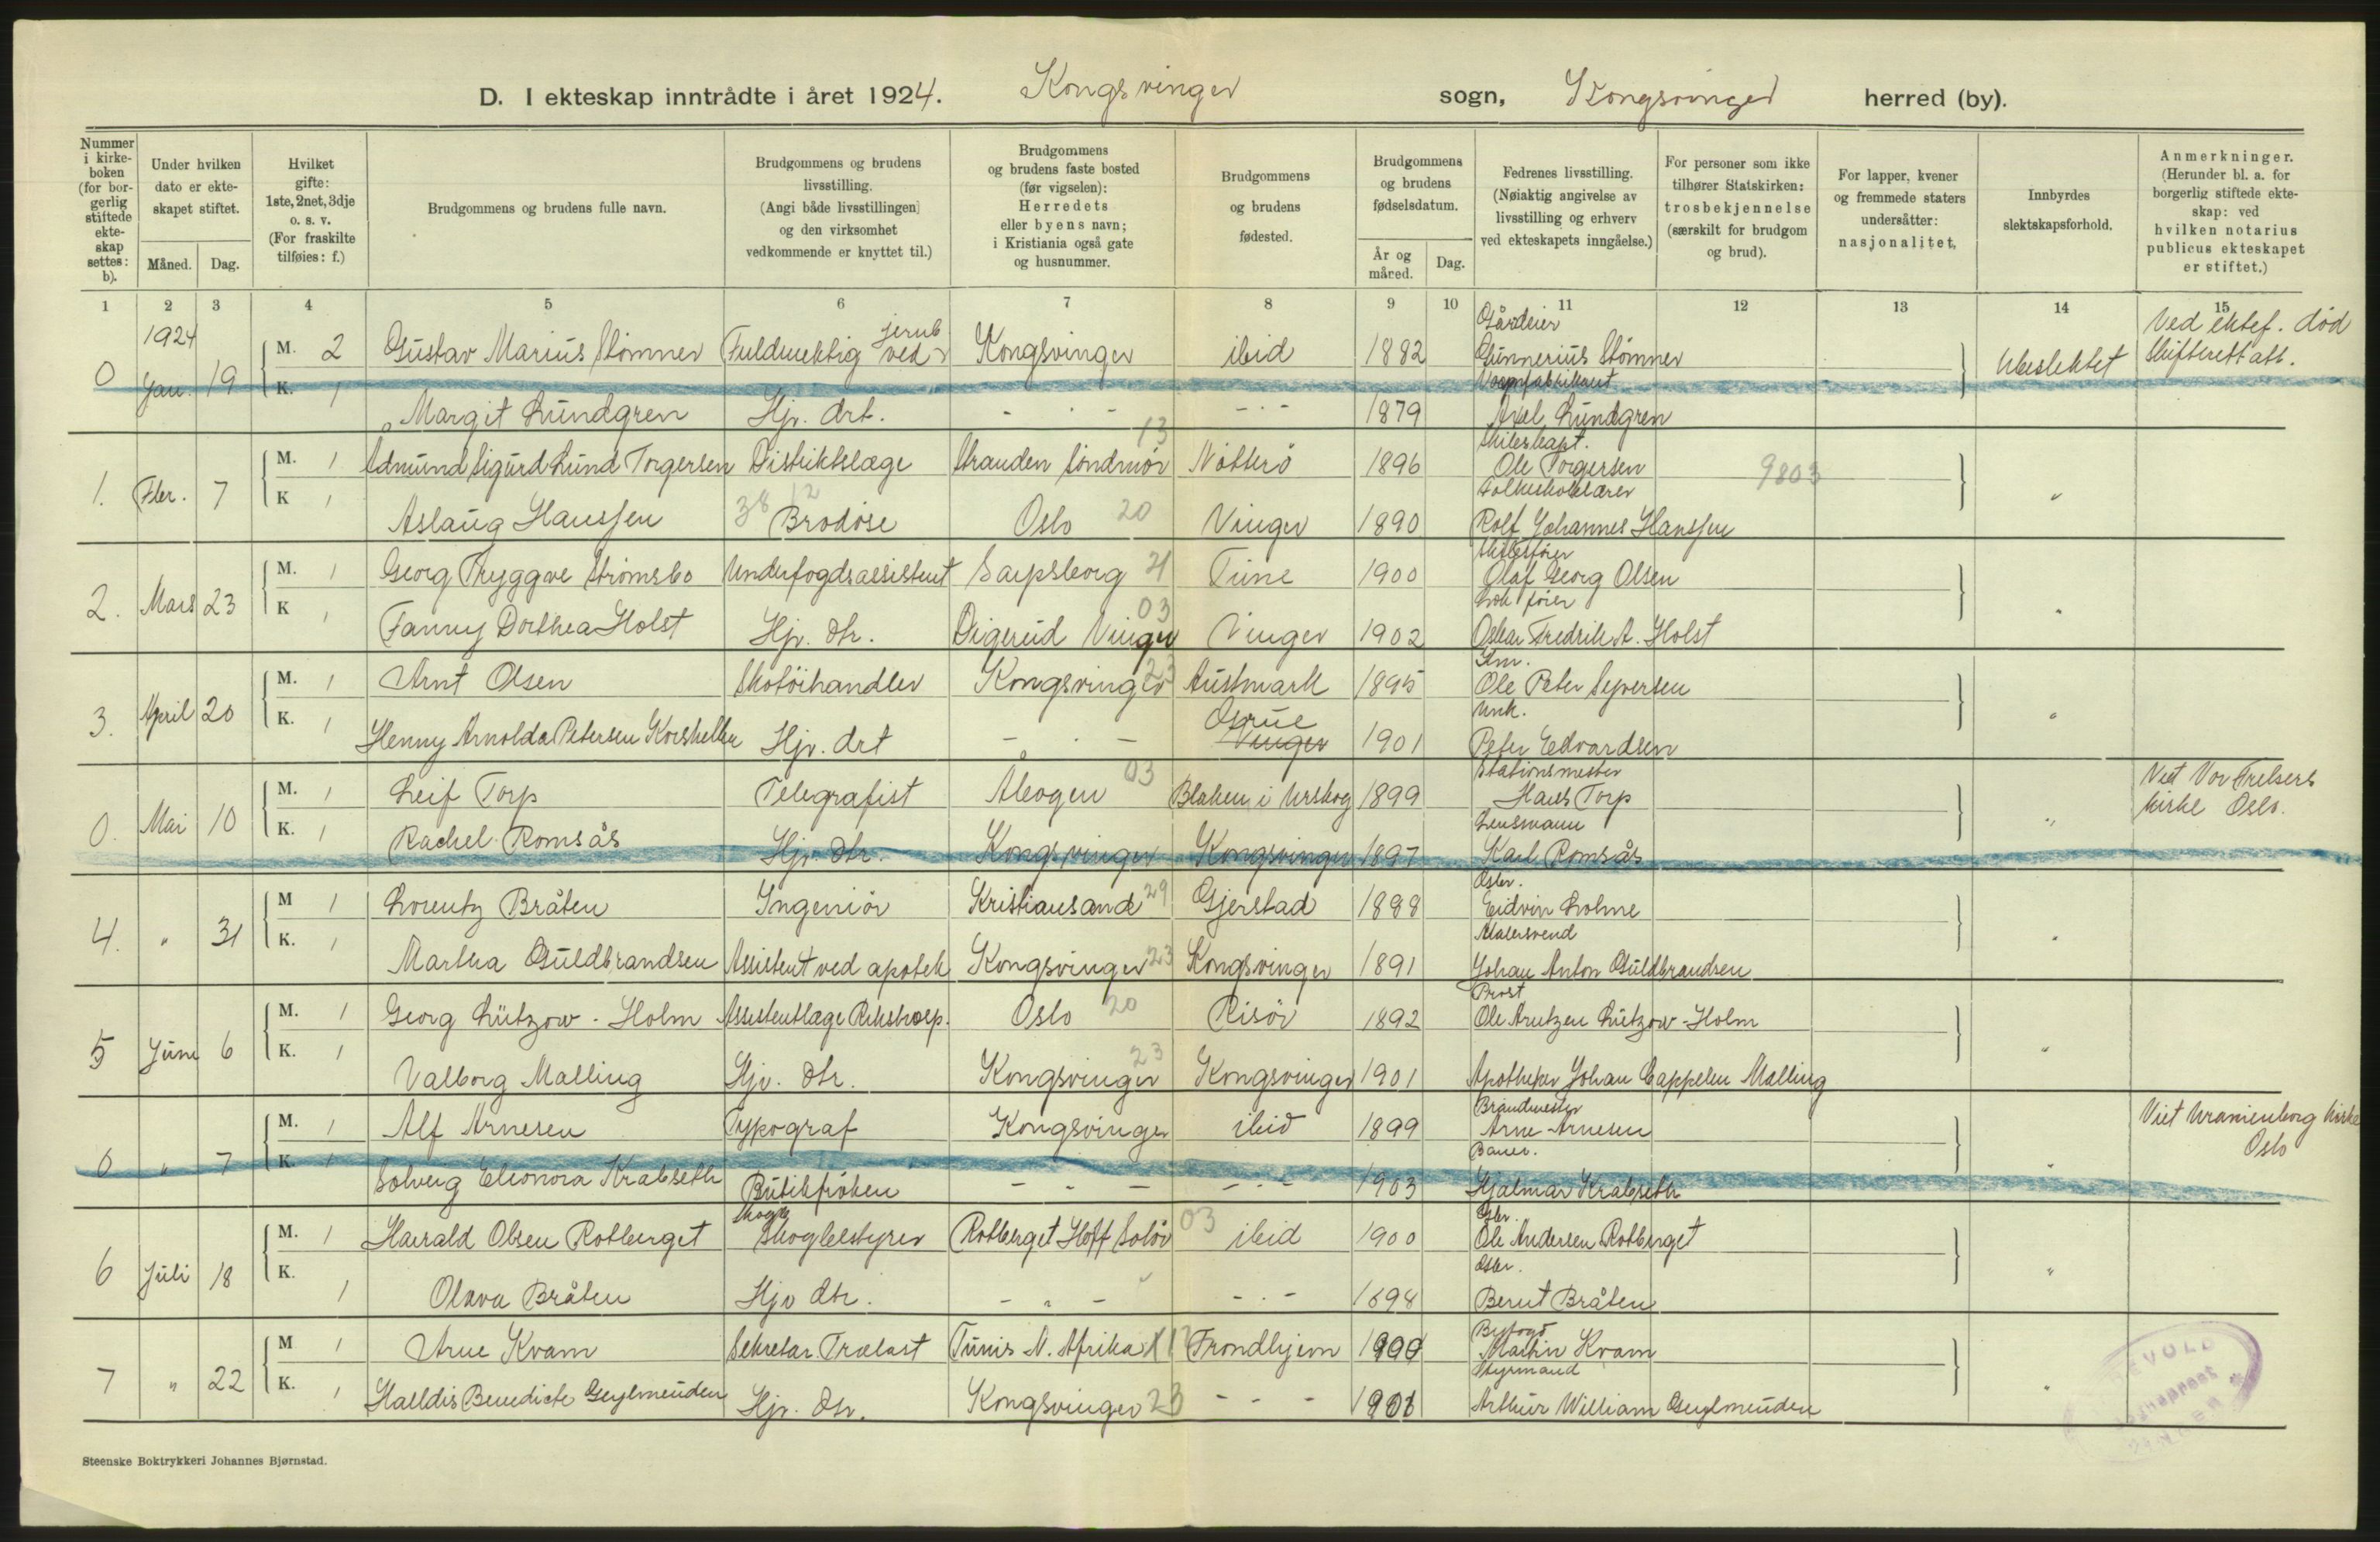 D. I ekteskap inntrådte i året 1924. Kongsvinger sogn, Kongsvinger herred (by).
Nummer i kirkeboken (for borgerlig stiftede ekteskap settes: b).
Under hvilken dato er ekteskapet stiftet.
Måned. Dag.
Hvilket gifte: 1ste, 2net, 3dje o. s. v. (For fraskilte tilføies: f.)
Brudgommens og brudens fulle navn.
Brudgommens og brudens livsstilling. (Angi både livsstillingen og den virksomhet vedkommende er knyttet til.)
Brudgommens og brudens faste bosted (før vigselen): Herredets eller byens navn; i Kristiania også gate og husnummer.
Brudgommens og brudens fødested.
Brudgommens og brudens fødselsdatum.
År og måned. Dag.
Fedrenes livsstilling. (Nøiaktig angivelse av livsstilling og erhverv ved ekteskapets inngåelse.)
For personer som ikke tilhører Statskirken: trosbekjennelse (særskilt for brudgom og brud).
For lapper, kvener og fremmede staters undersåtter: nasjonalitet.
Innbyrdes slektskapsforhold.
Anmerkninger. (Herunder bl. a. for borgerlig stiftede ekteskap: ved hvilken notarius publicus ekteskapet er stiftet.)
1 2 3 4 5 6 7 8 9 10 11 12 13 14 15
1924
0 Jan. 19 M. 2 Gustav Marius Stømner Fuldmektig ved jernb. Kongsvinger ibid 1882 Gårdeier Gunnerius Stømner Ubeslektet Ved ektef. død Skifterettatt.
K. 1 Margit Lundgren Hjv. dtr. - " - - " - 1879 Vognfabrikant Axel Lundgren
1. Febr. 7 M. 1 Edmund Sigurd Lund Torgersen Distriktslæge Stranden Søndmør 13 Nøtterö 1896 Skibskapt. Ole Torgersen 9803 "
K 1 Aslaug Hanssen 38 12 Brodøse Oslo 20 Vinger 1890 Folkeskolelærer Rolf Johannes Hanssen
2. Mars 23 M. 1 Georg Tryggve Strømsbo Underfogdsassistent Sarpsborg 21 Tune 1900 Skibsfører Olaf Georg Olsen "
K 1 Fanny Dorthea Holst Hjv. dtr. Digerud Vinger 03 Vinger 1902 Lok fører Oskar Fredrik A. Holst
3. April 20 M. 1 Arnt Olsen Skotöihandler Kongsvinger 23 Austmark 1895 Km. Ole Peter Syversen "
K. 1 Henny Arnolda Petersen Korshellen Hjv. drt - " - Grue Vinger 1901 Unk. Peter Edvardsen
0. Mai 10 M. 1 Leif Torp Telegrafist Åbogen 03 Blaken i Urskog 1899 Stationsmester Hans Torp " Viet Vor Frelsers kirke Oslo.
K. 1 Rachel Romsås Hjv. dtr. Kongsvinger Kongsvinger 1897 Lensmann Karl Romsås
4. " 31 M 1 Lorentz Bråten Ingeniør Kristiansand 29 Gjerstad 1898 Gbr. Eidvin Lolme "
K. 1 Martha Guldbrandsen Assistent ved apotek Kongsvinger 23 Kongsvinger 1891 Malersvend Johan Anton Guldbrandsen
5 Juni 6 M. 1 Georg Lützow-Holm Assistentlæge Rikshosp. Oslo 20 Risör 1892 Prost Ole Arntzen Lützow-Holm "
K. 1 Valborg Malling Hjv. dtr. Kongsvinger 23 Kongsvinger 1901 Apotheker Johan Cappelen Malling
0 " 7 M. 1 Alf Arnesen Typograf Kongsvinger ibid 1899 Brandmester Arne Arnesen " Viet Uranienborg kirke Oslo
K. 1 Solveig Eleonora Krabseth Butikfröken - " - - " - 1903 Hjalmar Krabseth
6 Juli 18 M. 1 Harald Olsen Rotberget Skogbestyrer Rotberget Hoff Solør 03 ibid 1900 Gbr. Ole Andersen Rotberget "
K. 1 Olava Bråten Hjv dtr. - " - - " - 1898 Gbr. Bernt Bråten
7 " 22 M 1 Arne Kvam Sekretær Trælast Tunis N. Afrika Trondhjem 1900 Byfogd Martin Kvam "
K. 1 Halldis Benedicte Geylmeuden Hjv. dtr. Kongsvinger 23 - - - 1901 Styrmand Arthur William Geylmeuden
Steenske Boktrykkeri Johannes Bjørnstad.